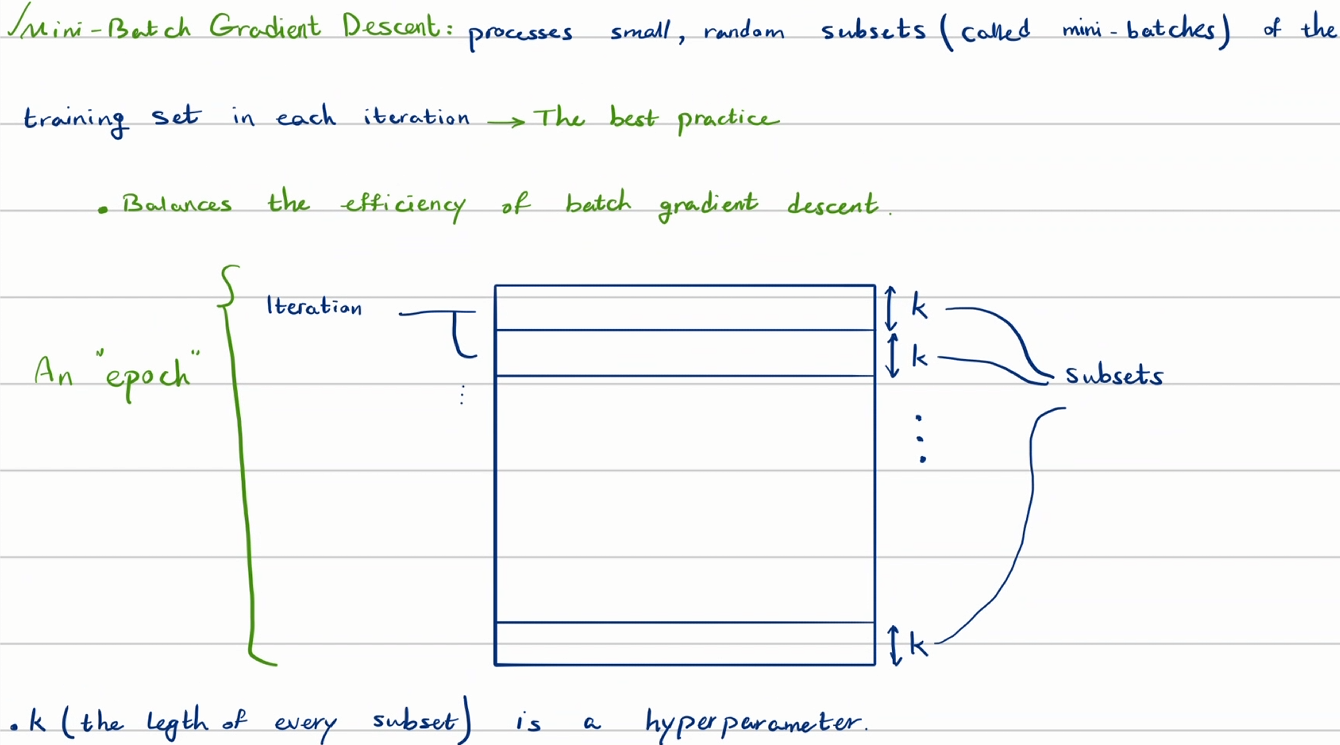 Mini-Batch Gradient Descent: processes small, random subsets (called mini-batches) of the
training set in each iteration → The best practice
• Balances the efficiency of batch gradient descent.
Iteration
k
An "epoch"
k
subsets
⋮
⋮
k
• k (the legth of every subset) is a hyperparameter.